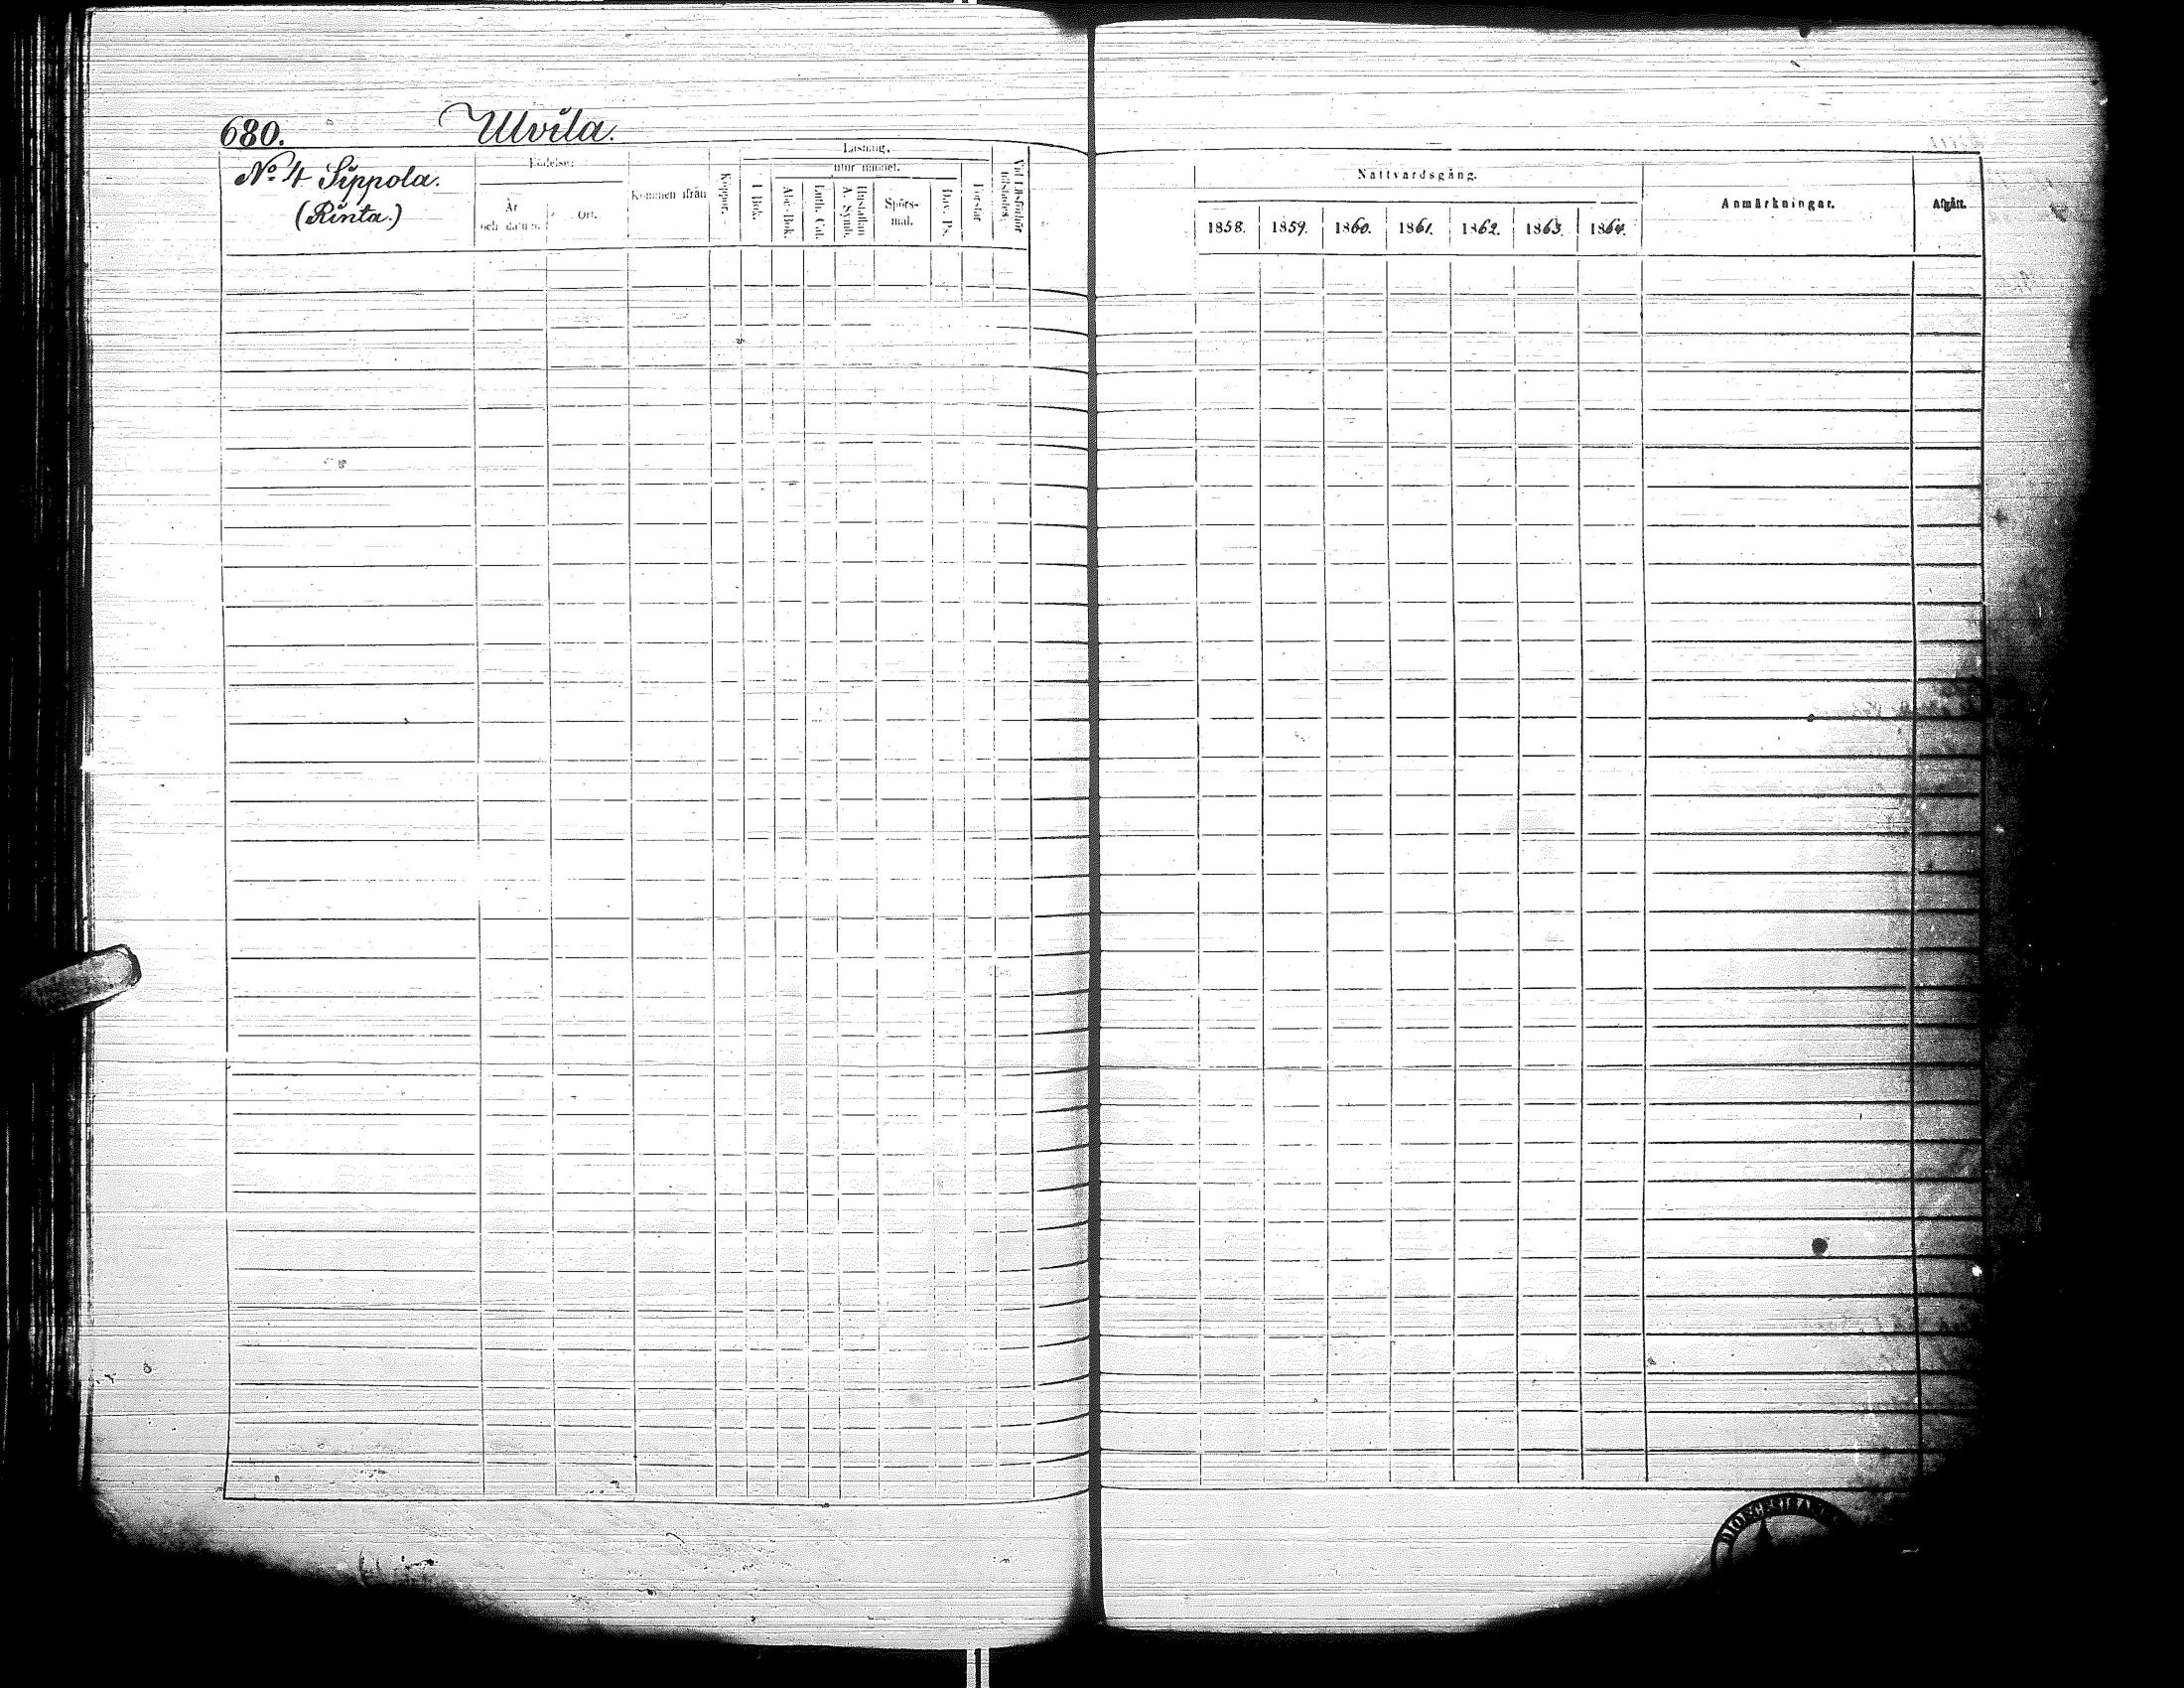 680. Ulvila.
No 4 Sippola.
(Rinta.)
Födelse:
År
och datum.
Ort.
Kommen ifrån
Koppor.
Läsning.
utur minnet.
I Bok.
Abc-Bok.
Luth. Cat.
Hustaflan
A. Symb.
Spörs-
mål.
Dav. Ps.
Förstår
Vid Läsförhör
tillstädes.
Nattvardsgång.
1858. 1859. 1860. 1861. 1862. 1863. 1864.
Anmärkningar.
Afgått.